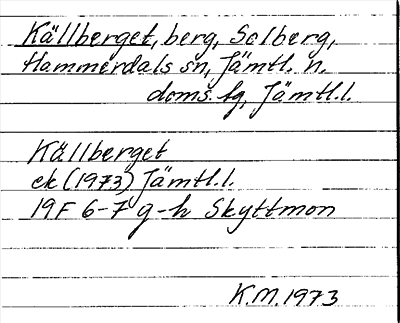 Källberget, berg, Solberg,
Hammerdals sn, Jämtl. n.
doms. fg, Jämtl.l.
Källberget
ek (1973) Jämtl.l.
19F 6-7 g-h Skyttmon
K.M. 1973